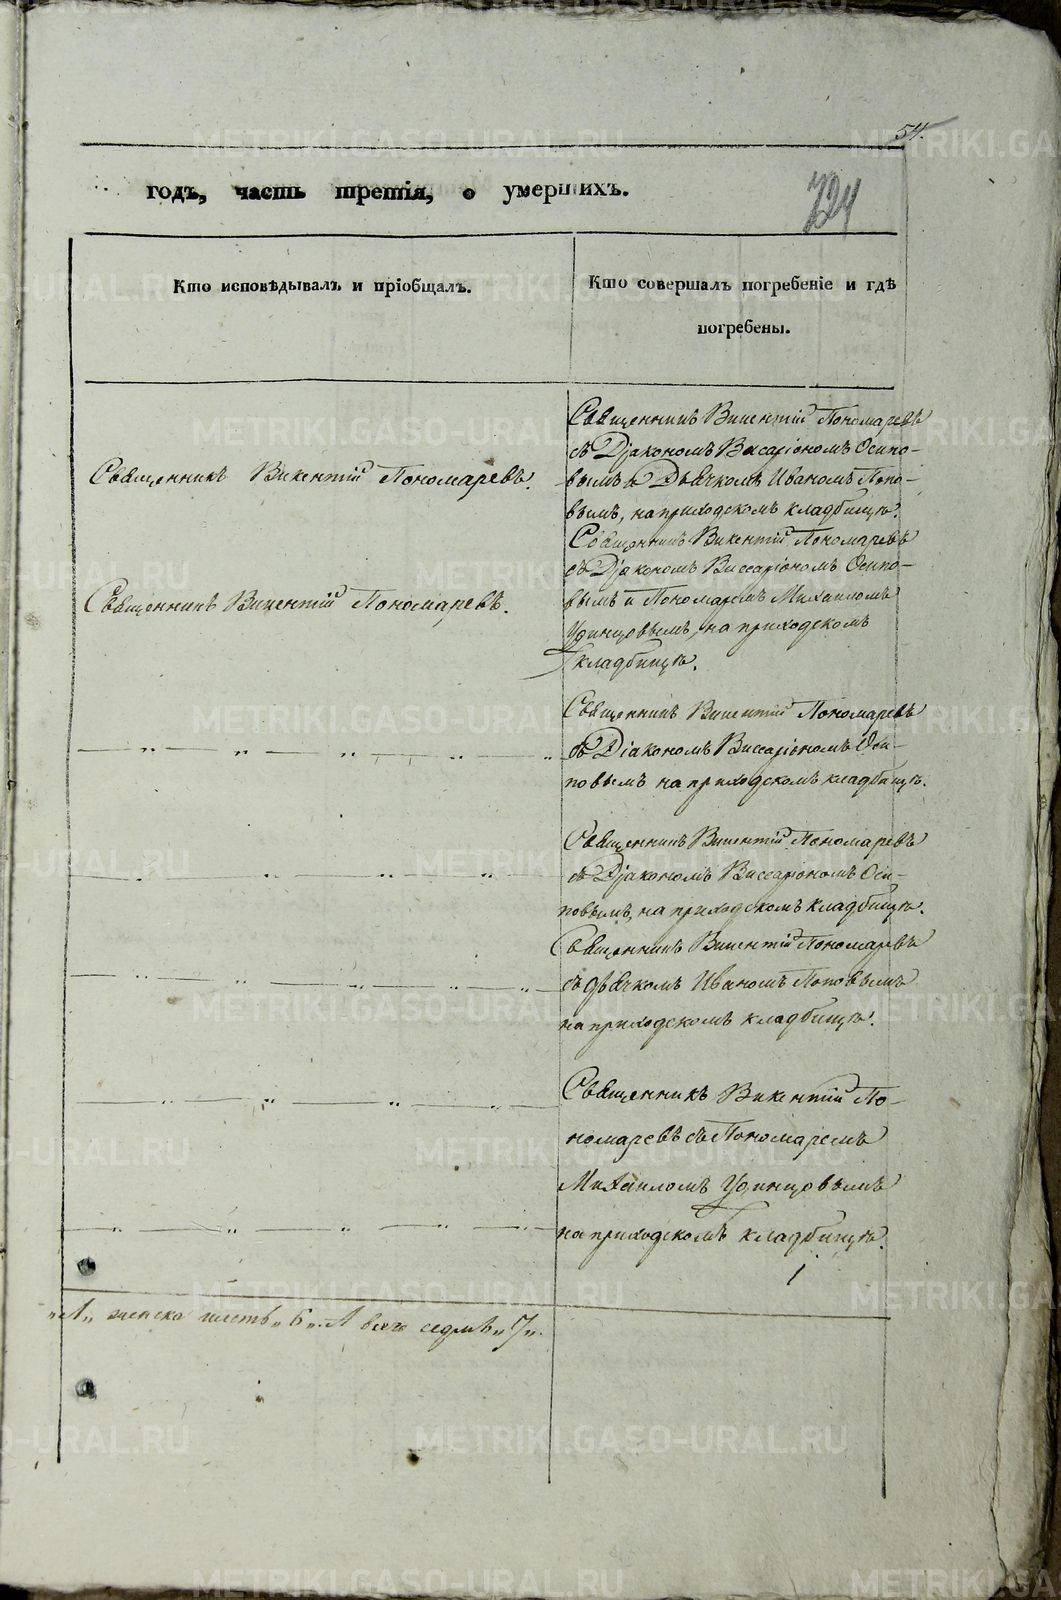 54.
годъ, часть третія, о умершихъ.
724
Кто исповѣдывалъ и пріобщалъ.
Кто совершалъ погребеніе и гдѣ
погребены.
Священникъ Викентій Пономаревъ.
Священникъ Викентій Пономаревъ
съ Діакономъ Висаріономъ Осипо-
вымъ и Дьячкомъ Иваномъ Попо-
вымъ, на приходскомъ кладбищѣ.
Священникъ Викентій Пономаревъ.
Священникъ Викентій Пономаревъ
съ Діакономъ Виссаріономъ Осипо-
вымъ и Пономаремъ Михаиломъ
Удинцовымъ, на приходскомъ
кладбищѣ.
Священникъ Викентій Пономаревъ
съ Діакономъ Виссаріономъ Оси-
повымъ на приходскомъ кладбищѣ.
Священникъ Викентій Пономаревъ
съ Діакономъ Виссаріономъ Оси-
повымъ, на приходскомъ кладбищѣ.
Священникъ Викентій Пономаревъ
съ дьячкомъ Иваномъ Поповымъ
на приходскомъ кладбищѣ.
Священникъ Викентій По-
номаревъ съ Пономаремъ
Михаиломъ Удинцовымъ
на приходскомъ кладбищѣ.
„1„ женска шесть „6„. А всего седмь „7„.
METRIKI.GASO-URAL.RU